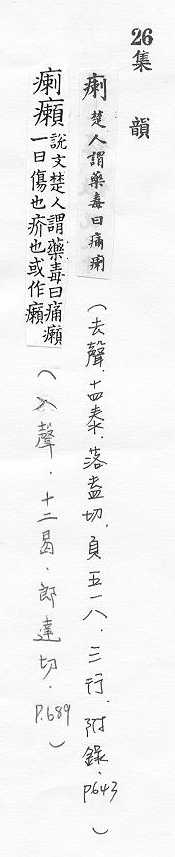 26集韻
瘌 楚人謂藥毒曰痛瘌
(去聲．十四泰．落蓋切．頁五一八．三行．附錄．p643)
瘌癩 說文楚人謂藥毒曰痛瘌
一曰傷也疥也或作癩
(入聲．十二曷．郎達切．P.689)